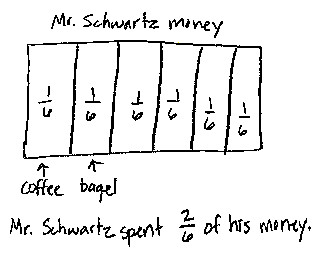 Mr. Schwartz money
1/6 1/6 1/6 1/6 1/6 1/6
↑ ↑
coffee bagel
Mr. Schwartz spent 2/6 of his money.